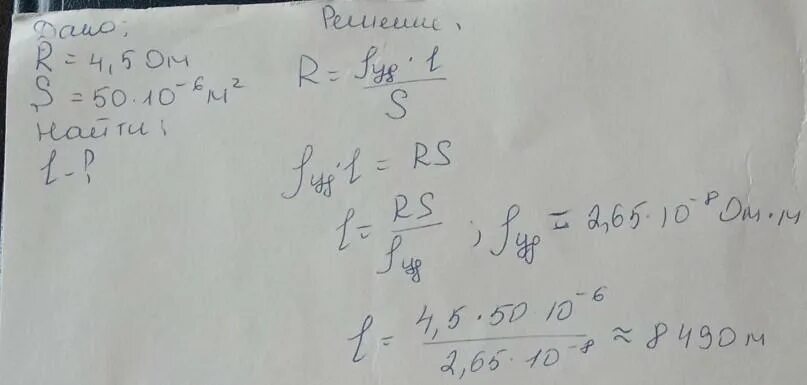 Дано:
R = 4,5 Ом
S = 50·10⁻⁶ м²
Найти:
l - ?
Решение.
R = ρуд · l / S
ρуд · l = RS
l = RS / ρуд ; ρуд = 2,65·10⁻⁸ Ом·м
l = 4,5·50 10⁻⁶ / 2,65·10⁻⁸ ≈ 8490 м